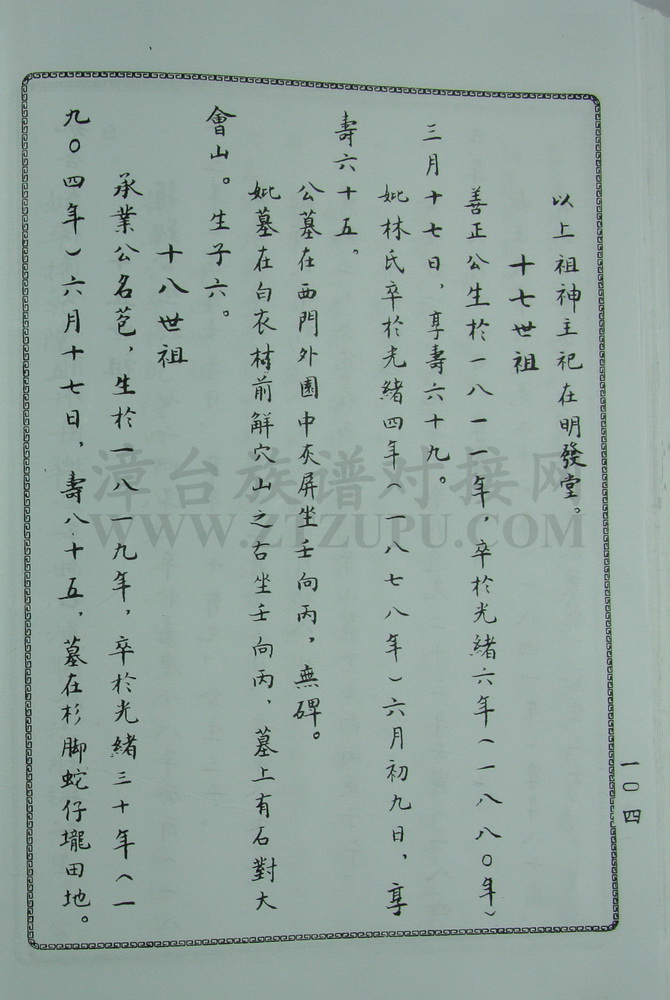 以上祖神主祀在明發堂。
十七世祖
善正公生於一八一一年，卒於光緒六年（一八八〇年）
三月十七日，享壽六十九。
妣林氏卒於光緒四年（一八七八年）六月初九日，享
壽六十五，
公墓在西門外園中灰屏坐壬向丙，無碑。
妣墓在白衣樹前解穴山之右坐壬向丙，墓上有石對大
會山。生子六。
十八世祖
承業公名苞，生於一八一九年，卒於光緒三十年（一
九〇四年）六月十七日，壽八十五，墓在杉脚蛇仔壠田地。
一〇四
漳台族谱对接网
WWW.ZTZUPU.COM